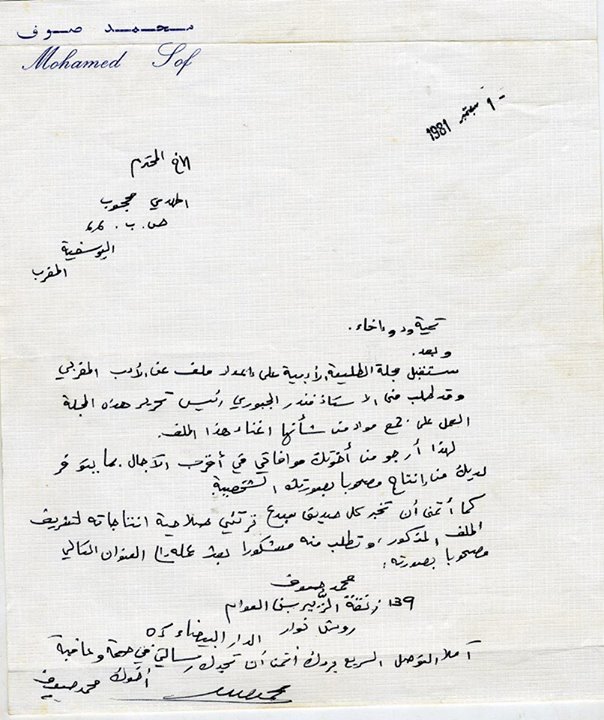 محمد صوف
Mohamed Sof
1 سبتمبر 1981
الاخ المحترم
ص. ب.
اليوسفية
المغرب
تحية ود وإخاء.
وبعد.
ستقبل مجلة الطليعة الأدبية على إعداد ملف عن الأدب المغربي
وقد طلب مني الاستاذ منذر الجبوري رئيس تحرير هذه المجلة
العمل على جمع مواد من شأنها اغناء هذا الملف.
لهذا أرجو من أخوتك موافاتي في أقرب الآجال بما يتوفر
لديك من إنتاج مصحوبا بصورتك الشخصية
كما أتمنى أن تخبر كل صديق مبدع ترتئي صلاحية انتاجاته لتشريف
الملف المذكور، وتطلب منه مشكورا بعث عمله إلى العنوان التالي
مصحوبا بصورته:
محمد صوف
139 زنقة الزبير بن العوام
روش نوار الدار البيضاء
آملا التوصل السريع بردك أتمنى أن تجدك رسالتي في صحة وعافية
أخوك محمد صوف